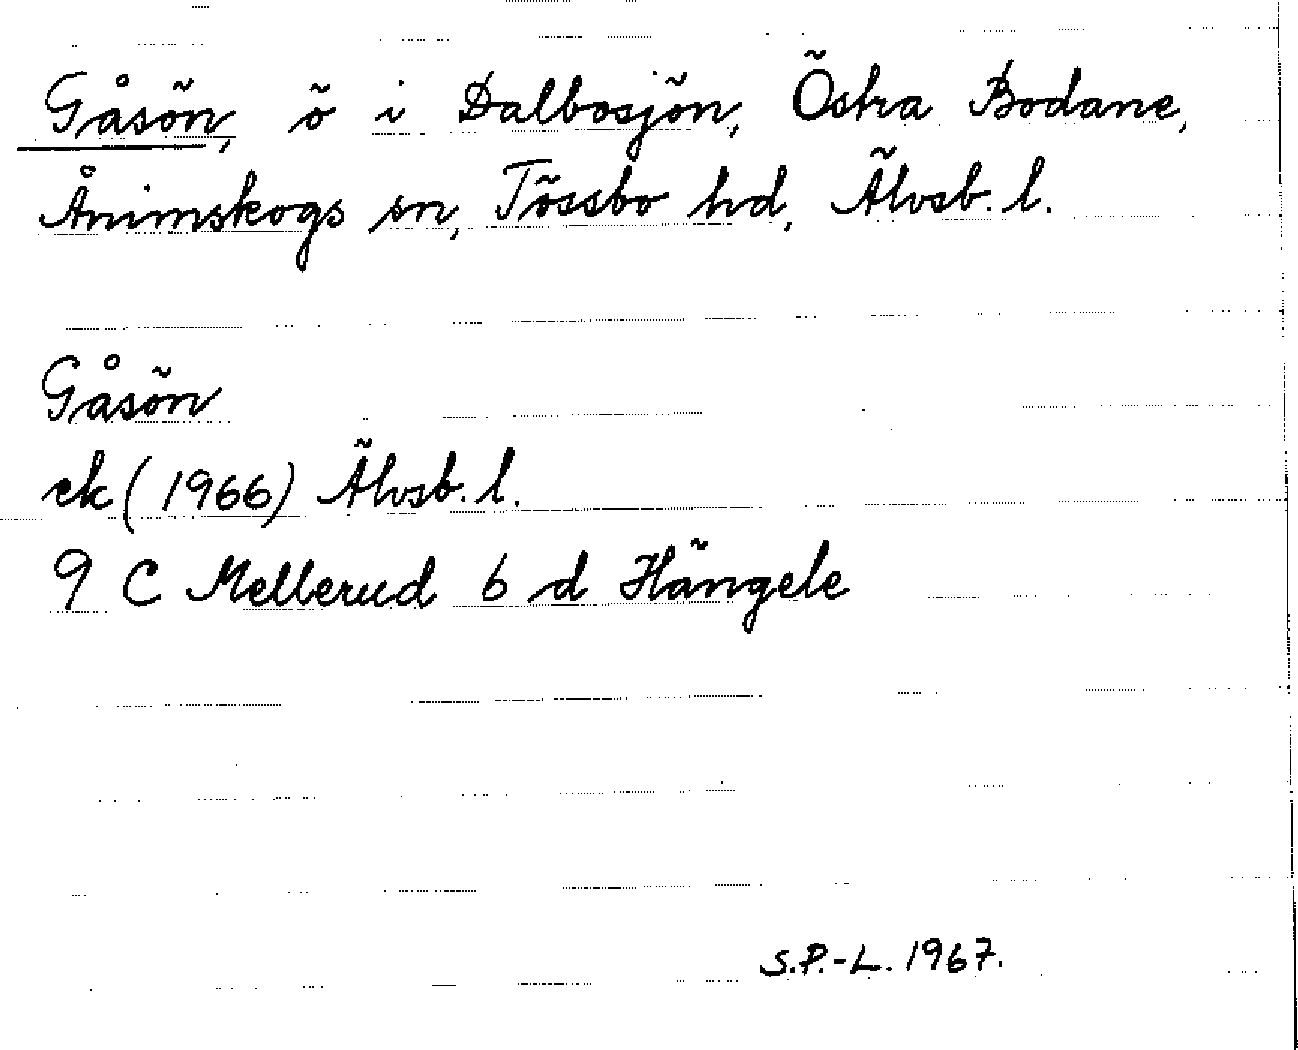 Gåsön, ö i Dalbosjön, Östra Bodane,
Ånimskogs sn, Tössbo hd, Älvsb. l.
Gåsön
ek (1966) Älvsb. l.
9 C Mellerud 6 d Hängele
S.P.-L. 1967.